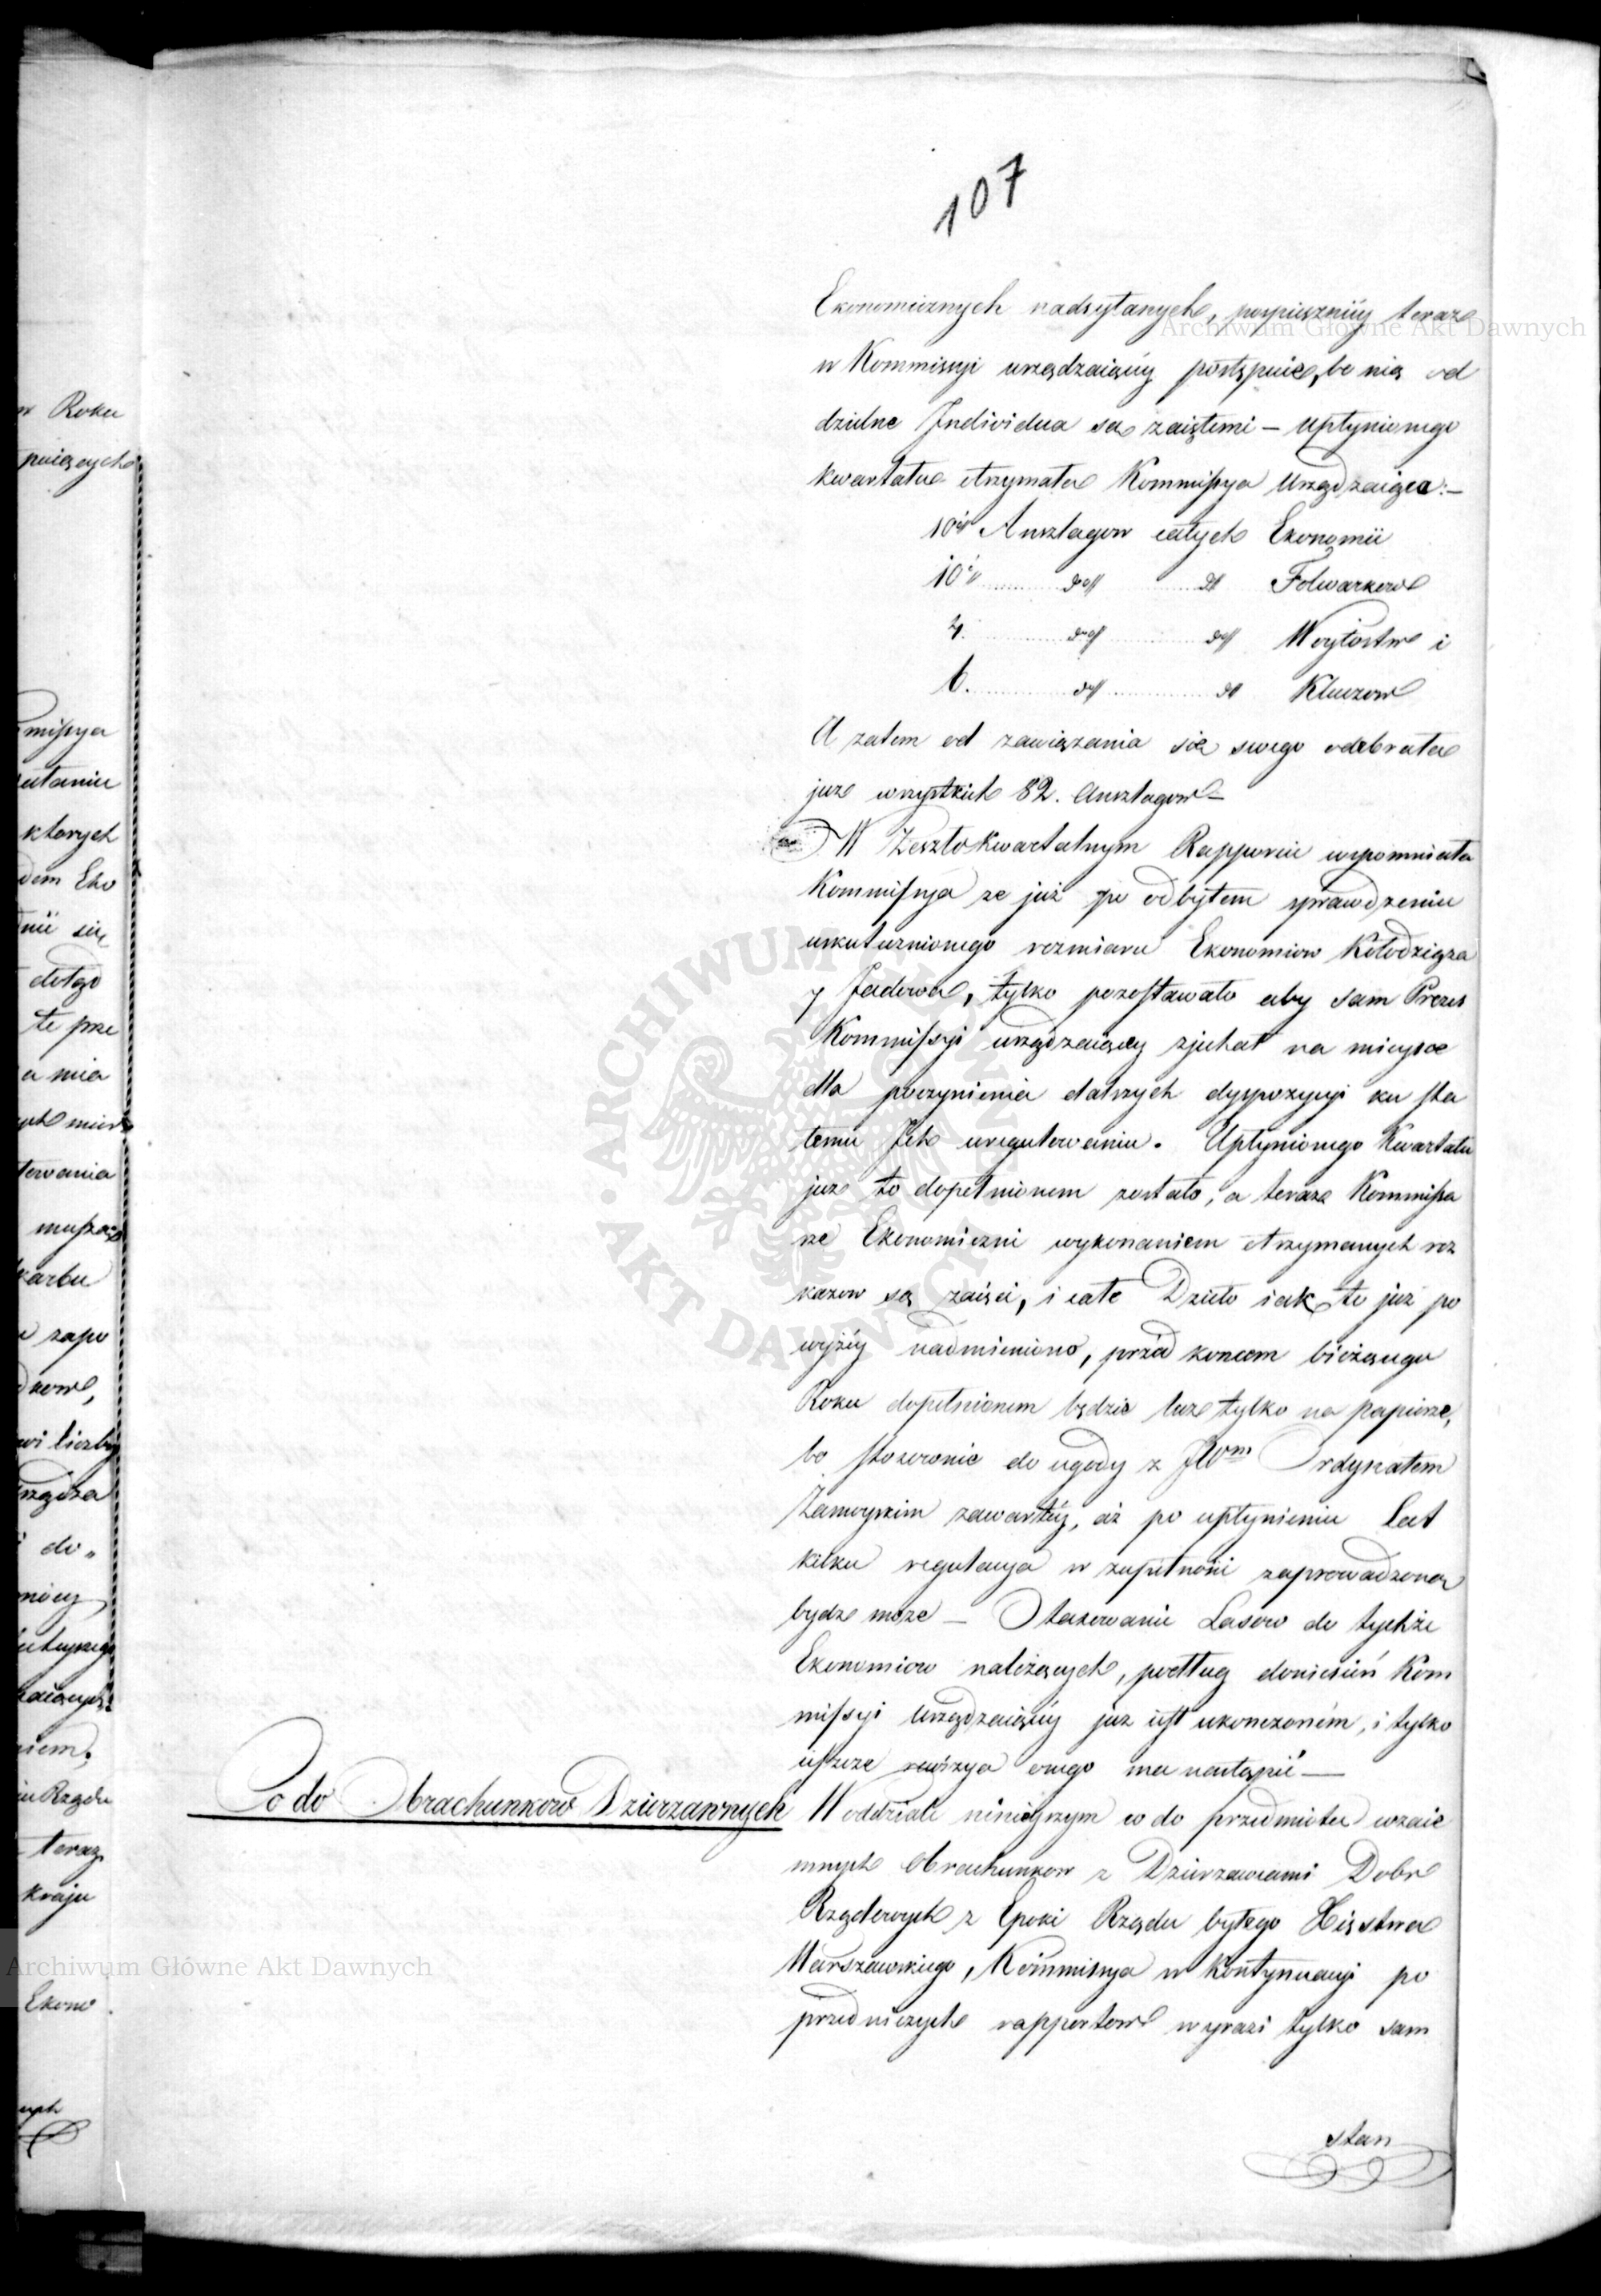 107
Ekonomicznych nadsyłanych, pospieszniey teraz
w Kommissyi urządzaiącey postąpuie, bo nią od
dzielne Individua są zaiętemi – Upłynionego
kwartału otrzymała Kommissya Urządzaiąca:–
10 Anszlagow całych Ekonomii
10 do do Folwarkow
7. do do Woytostw i
6. do do Kluczow
A zatem od zawiązania się swego odebrała
iuż wszystkich 82. Anszlagow –
W Zeszłokwartalnym Rapporcie wspomniała
Kommissya że już po odbytem sprawdzeniu
uskutecznionego rozmiaru Ekonomiow Kołodziąża
y Jadowa, tylko pozostawało aby sam Prezes
Kommissyi urządzaiącey zjechał na mieysce
dla poczynienia dalszych dyspozycyi ku sta
łemu Ich uregulowaniu. Upłynionego Kwartału
już to dopełnionem zostało, a teraz Kommissa
rze Ekonomiczni wykonaniem otrzymanych roz
kazow są zaięci, i całe Dzieło iak to już po
wyżey nadmieniono, przed koncem bieżącego
Roku dopełnionem będzie lecz tylko na papierze,
bo stosownie do ugody z JWm Ordynatem
Zamoyskim zawartey, aż po upłynieniu Lat
kilku regulacya w zupełności zaprowadzona
bydz może – Otaxowanie Lasow do tychże
Ekonomiow należących, podług doniesień Kom
missyi Urządzaiącey juz iest ukonczoném, i tylko
ieszcze rewizya onego ma nastąpić –
Co do Obrachunkow Dzierzawnych
W oddziale ninieyszym co do przedmiotu wzaie
mnych Obrachunkow z Dzierzawcami Dobr
Rządowych z Epoki Rządu byłego Xięstwa
Warszawskiego, Kommissya w kontynuacyi po
przedniczych rapportow wyrazi tylko sam
stan
w Roku
puiących
missya
ktorych
dem Eko
nii się
dotąd
te prze
a mia
towania
muszą
karbu
zapo
wi liczby
do„
Rządu
teraz
kraju
Ekono
Archiwum Główne Akt Dawnych
Archiwum Główne Akt Dawnych
ARCHIWUM GŁÓWNE • AKT DAWNYCH •